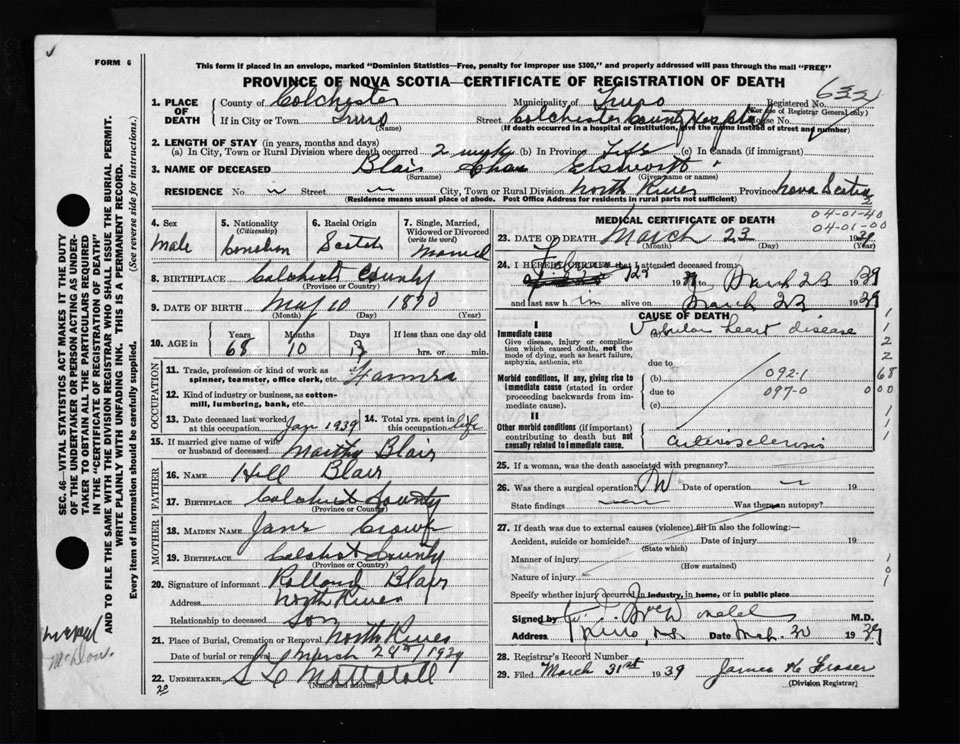 FORM 6
This form if placed in an envelope, marked "Dominion Statistics—Free, penalty for improper use $300," and properly addressed will pass through the mail "FREE"
PROVINCE OF NOVA SCOTIA—CERTIFICATE OF REGISTRATION OF DEATH
632
1. PLACE OF DEATH County of Colchester Municipality of Truro Registered No.
(For use of Registrar General only)
If in City or Town Truro (Name) Street Colchester County Hospital House No.
(If death occurred in a hospital or institution, give the name instead of street and number)
2. LENGTH OF STAY (in years, months and days)
(a) In City, Town or Rural Division where death occurred 2 weeks (b) In Province Life (c) In Canada (if immigrant)
3. NAME OF DECEASED Blair Chas Elsworth
(Surname) (Given name or names)
RESIDENCE No. Street City, Town or Rural Division North River Province Nova Scotia
(Residence means usual place of abode. Post Office Address for residents in rural parts not sufficient)
4. Sex male
5. Nationality (Citizenship)
6. Racial Origin Scotch
7. Single, Married, Widowed or Divorced (write the word) Married
8. BIRTHPLACE Colchest County
(Province or Country)
9. DATE OF BIRTH May 10 1870
(Month) (Day) (Year)
10. AGE in Years 68 Months 10 Days 13 If less than one day old hrs. or min.
OCCUPATION
11. Trade, profession or kind of work as spinner, teamster, office clerk, etc. Farmer
12. Kind of industry or business, as cotton-mill, lumbering, bank, etc.
13. Date deceased last worked at this occupation Jan 1939
14. Total yrs. spent in this occupation life
15. If married give name of wife or husband of deceased Martha Blair
FATHER
16. NAME Hill Blair
17. BIRTHPLACE Colchest County
(Province or Country)
MOTHER
18. MAIDEN NAME Jane Crowe
19. BIRTHPLACE Colchest County
(Province or Country)
20. Signature of informant Rolland Blair
Address North River
Relationship to deceased Son
21. Place of Burial, Cremation or Removal North River
Date of burial or removal March 1939
22. UNDERTAKER S L Mattatall
(Name and address)
20
MEDICAL CERTIFICATE OF DEATH
04-01-40
04-01-00
23. DATE OF DEATH March 23 1939
(Month) (Day) (Year)
24. I HEREBY CERTIFY that I attended deceased from:
Feb 123 1939 to March 23 1939
and last saw him alive on March 23 1939
CAUSE OF DEATH
I
Immediate cause
Give disease, injury or complication which caused death, not the mode of dying, such as heart failure, asphyxia, asthenia, etc
Valvular heart disease
due to
Morbid conditions, if any, giving rise to immediate cause (stated in order proceeding backwards from immediate cause).
(b) 092-1
due to 097-0
(c)
II
Other morbid conditions (if important) contributing to death but not causally related to immediate cause.
arteriosclerosis
25. If a woman, was the death associated with pregnancy?
26. Was there a surgical operation? No Date of operation
State findings Was there an autopsy?
27. If death was due to external causes (violence) fill in also the following:—
Accident, suicide or homicide? Date of injury 19
(State which)
Manner of injury
(How sustained)
Nature of injury
Specify whether injury occurred in industry, in home, or in public place
Signed by M.D.
Address Truro, N.S. Date Mch. 30 1939
28. Registrar's Record Number
29. Filed March 31st 1939 James H Fraser
(Division Registrar)
SEC. 46—VITAL STATISTICS ACT MAKES IT THE DUTY OF THE UNDERTAKER OR PERSON ACTING AS UNDERTAKER TO OBTAIN ALL THE PARTICULARS REQUIRED IN THE "CERTIFICATE OF REGISTRATION OF DEATH" AND TO FILE THE SAME WITH THE DIVISION REGISTRAR WHO SHALL ISSUE THE BURIAL PERMIT.
WRITE PLAINLY WITH UNFADING INK. THIS IS A PERMANENT RECORD.
Every item of information should be carefully supplied. (See reverse side for instructions.)